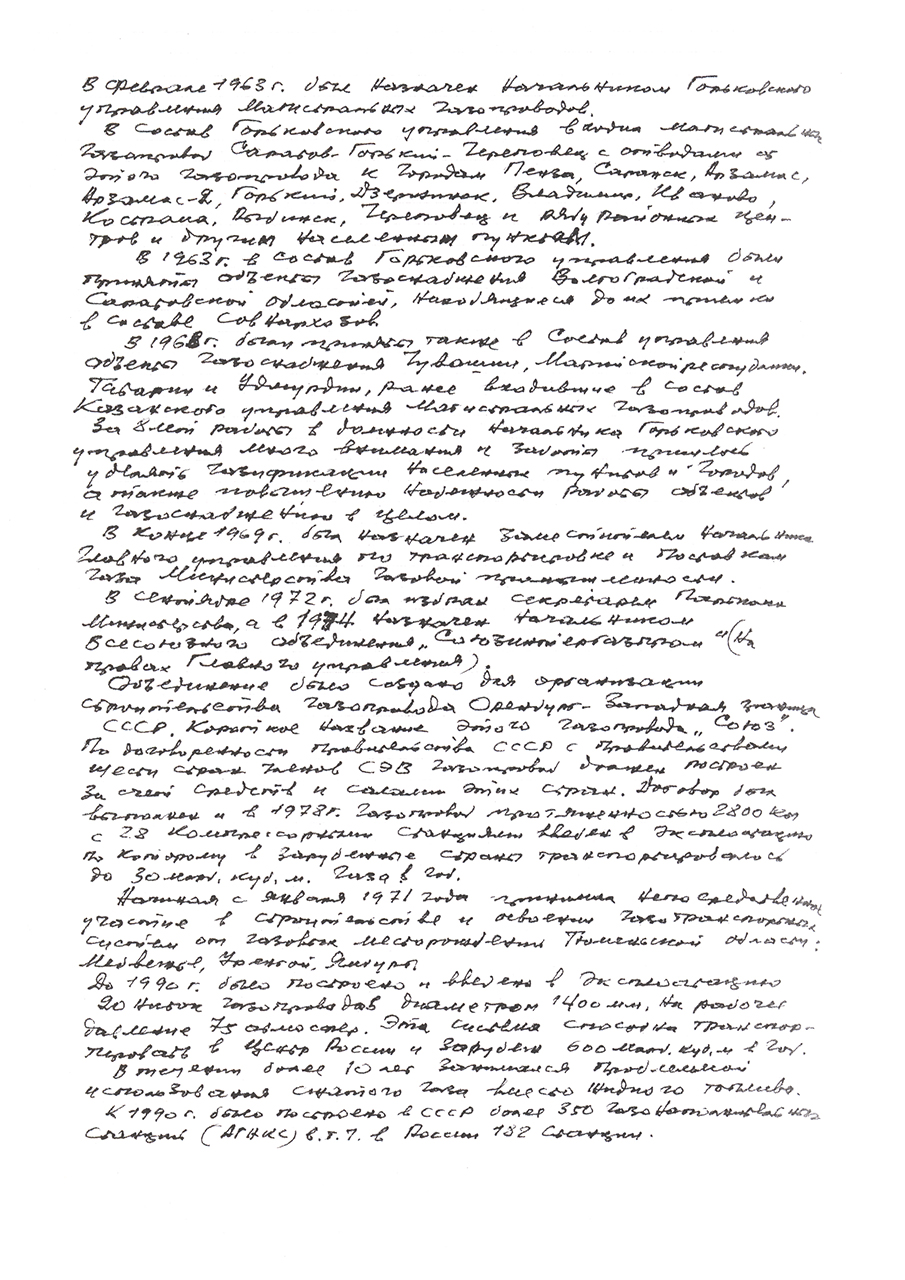 В феврале 1963 г. был назначен Начальником Горьковского
управления Магистральных газопроводов.
В состав Горьковского управления входил магистральный
газопровод Саратов-Горький-Череповец с отводами от
этого газопровода к городам Пенза, Саранск, Арзамас,
Арзамас-II, Горький, Дзержинск, Владимир, Иваново,
Кострома, Рыбинск, Череповец и ряду районных цен-
тров и другим населенным пунктам.
В 1963 г. в состав Горьковского управления были
приняты объекты газоснабжения Волгоградской и
Саратовской областей, находящиеся до их приемки
в составе Совнархозов.
В 1968 г. были приняты также в состав управления
объекты газоснабжения Чувашии, Марийской республики,
Татарии и Удмуртии, ранее входившие в состав
Казанского управления Магистральных газопроводов.
За 8 лет работы в должности Начальника Горьковского
управления много внимания и заботы пришлось
уделять газификации населенных пунктов и городов,
а также повышению надежности работы объектов
и газоснабжению в целом.
В конце 1969 г. был назначен заместителем Начальника
Главного управления по транспортировке и поставкам
газа Министерства газовой промышленности.
В сентябре 1972 г. был избран секретарем Парткома
Министерства, а в 1974 назначен Начальником
Всесоюзного объединения „Союзинтергазпром" (на
правах Главного управления).
Объединение было создано для организации
строительства газопровода Оренбург-Западная граница
СССР. Короткое название этого газопровода „Союз".
По договоренности правительства СССР с правительствами
шести стран членов СЭВ газопровод должен построен
за счет средств и силами этих стран. Договор был
выполнен и в 1978 г. газопровод протяженностью 2800 км
с 28 компрессорными станциями введен в эксплоатацию
по которому в зарубежные страны транспортировалось
до 30 млрд. куб. м. газа в год.
Начиная с января 1971 года принимал непосредственное
участие в строительстве и освоении газотранспортных
систем от газовых месторождений Тюменьской области:
Медвежье, Уренгой, Ямбург.
До 1990 г. было построено и введено в эксплоатацию
20 ниток газопроводов диаметром 1400 мм, на рабочее
давление 75 атмосфер. Эта система способна транспор-
тировать в центр России и зарубеж 600 млрд. куб. м в год.
В течении более 10 лет занимался проблемой
использования сжатого газа вместо жидкого топлива.
К 1990 г. было построено в СССР более 350 газонаполнительных
станций (АГНКС) в.т.ч. в России 182 станции.